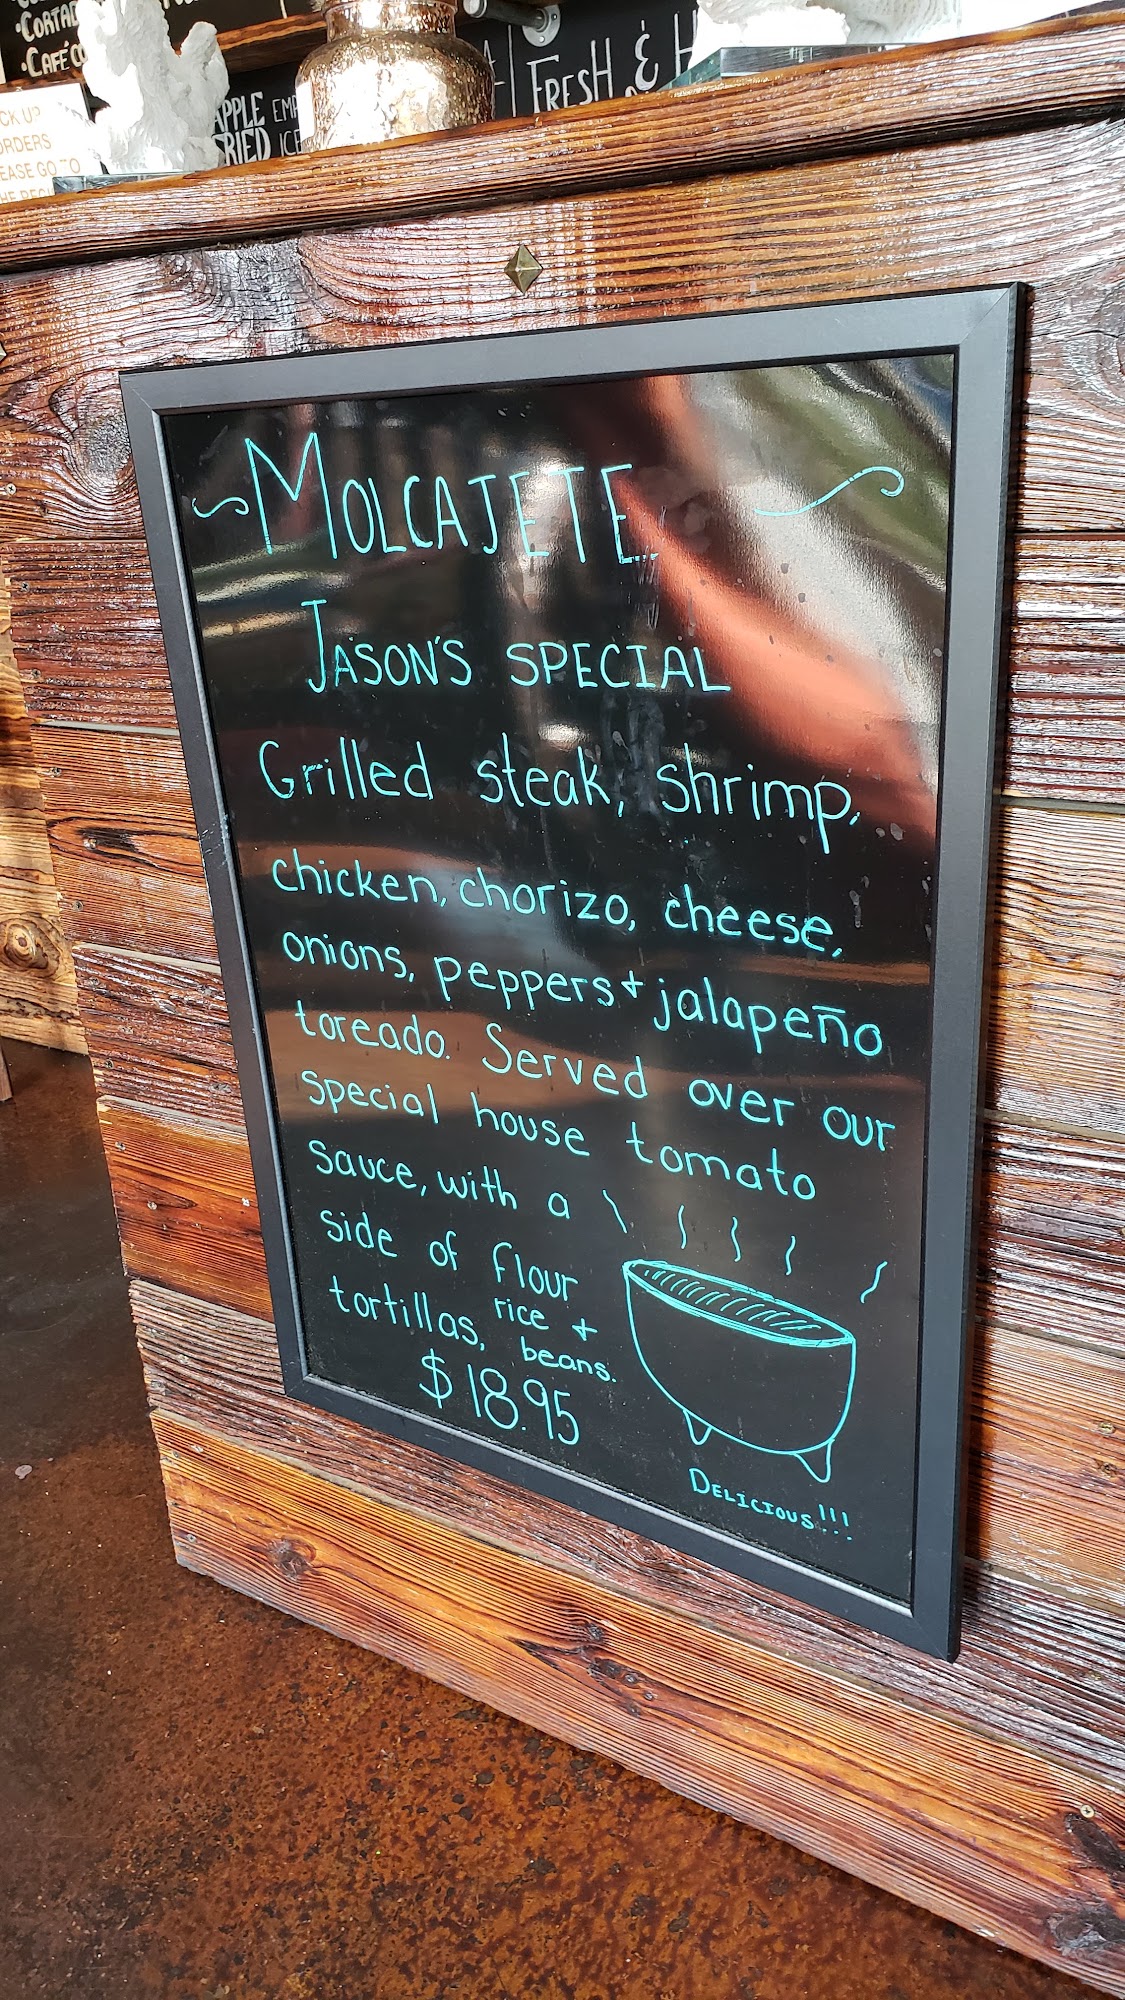 FRESH &
APPLE
FRIED ICE
ORDERS
GO TO
~MOLCAJETE~
JASON'S SPECIAL
Grilled steak, shrimp,
chicken, chorizo, cheese,
onions, peppers + jalapeño
toreado. Served over our
special house tomato
sauce, with a
side of flour
tortillas, rice +
beans.
$18.95
DELICIOUS!!!